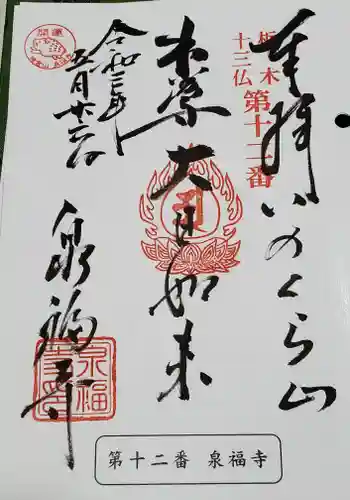 奉拝 いのくら山
栃木
十三仏
第十二番
本尊 大日如来
令和三年
五月廿三日
開運
泉福寺
泉福寺
第十二番 泉福寺